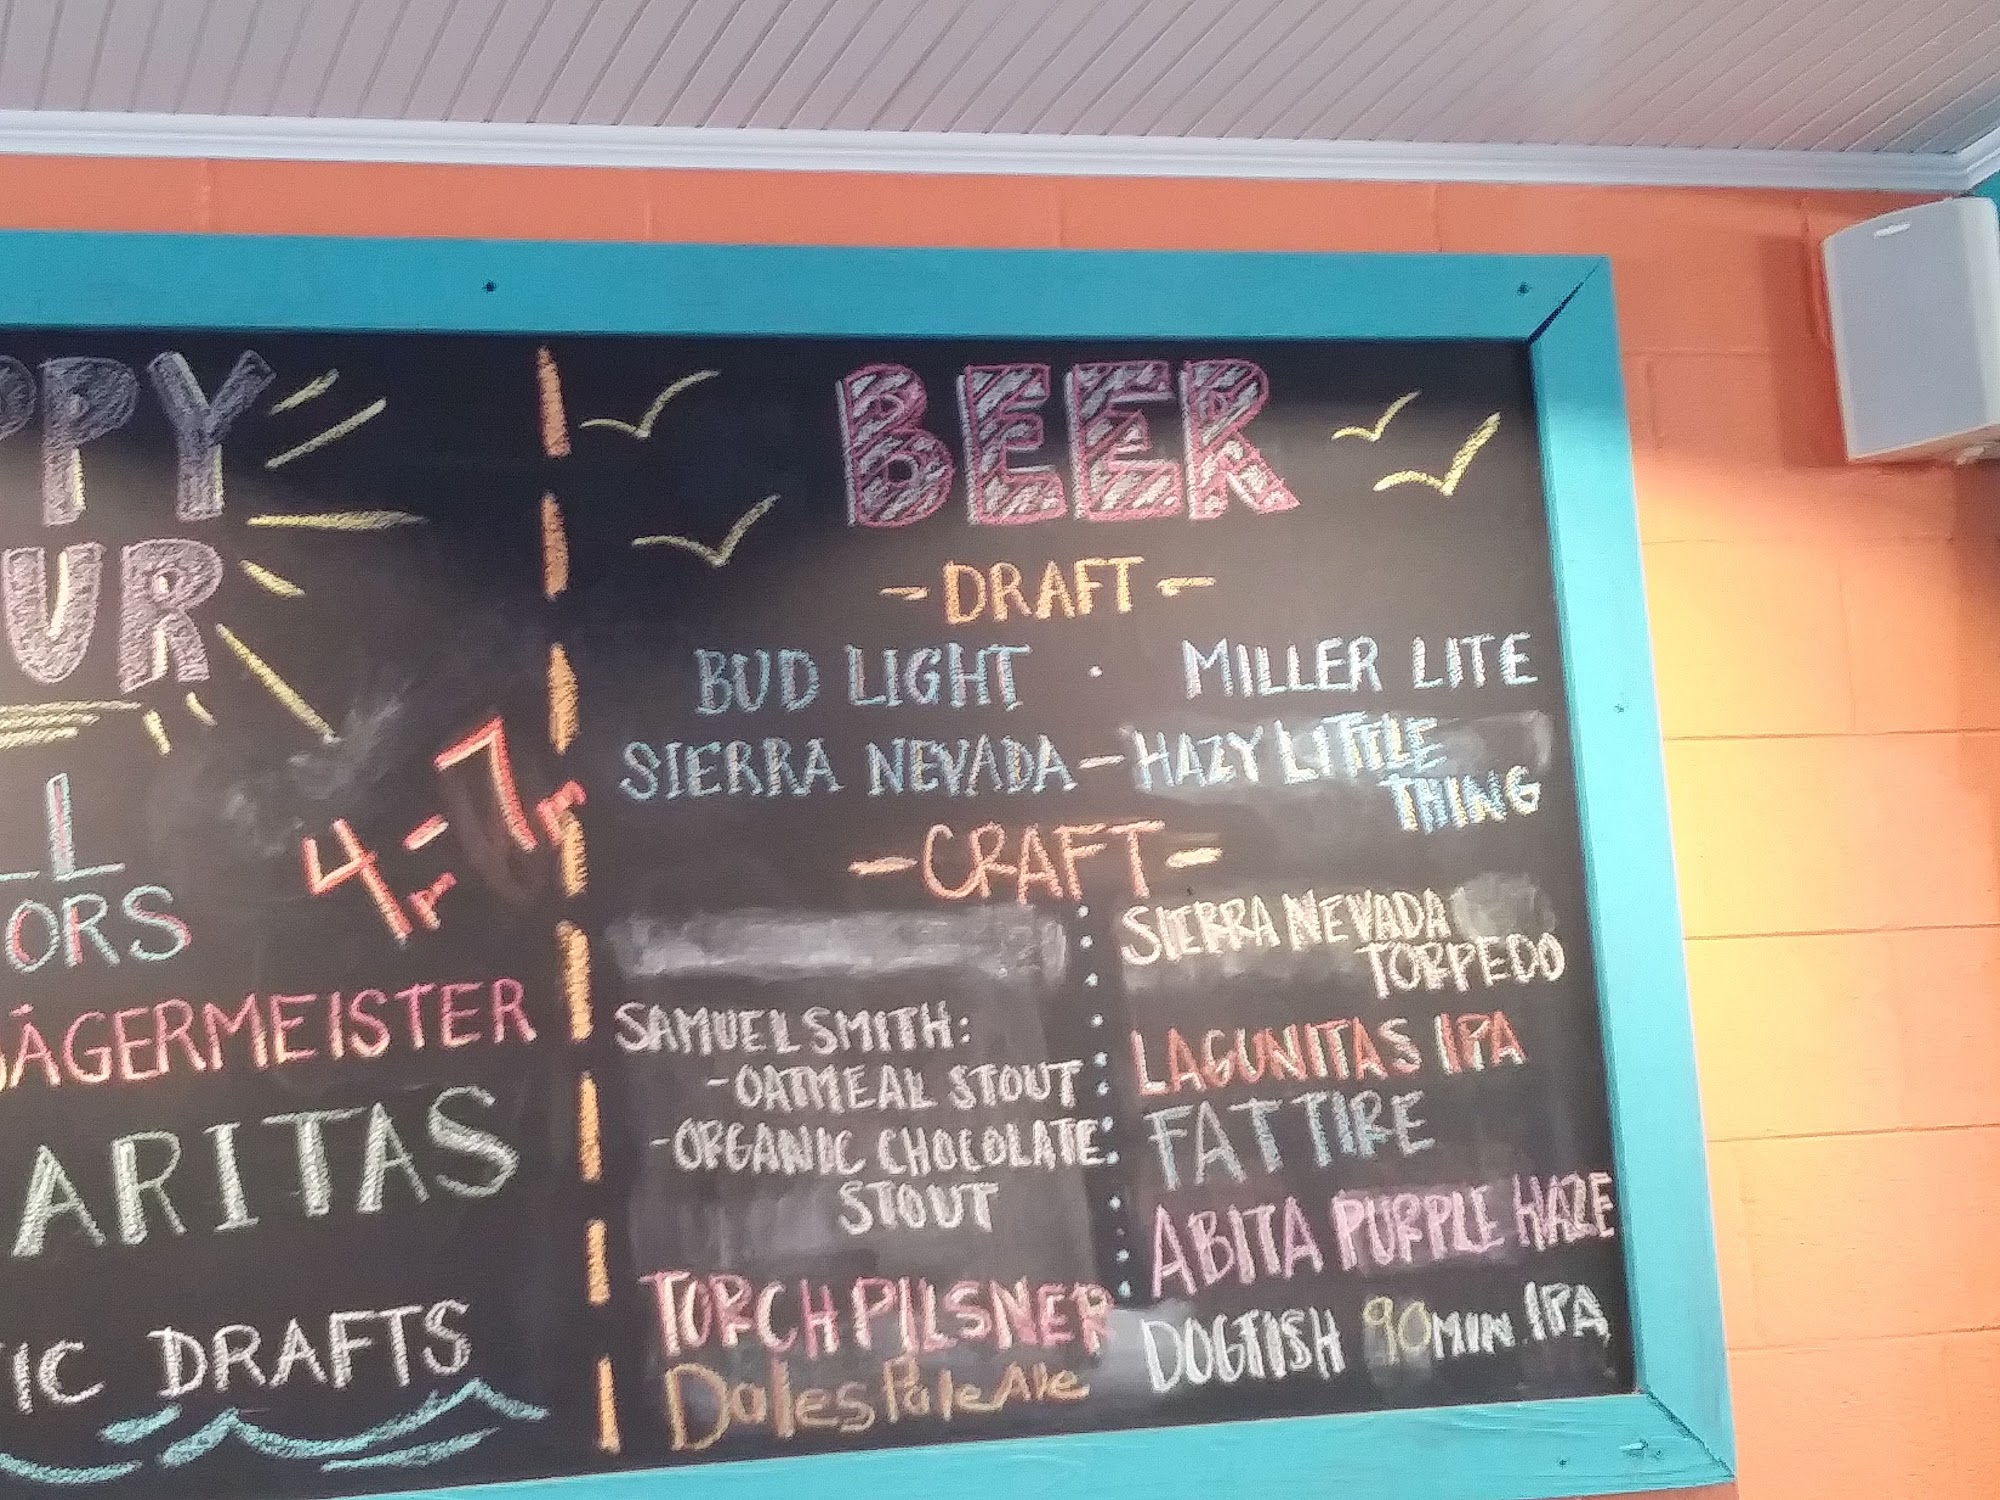 PPY
UR
LL
4P-7P
ORS
JÄGERMEISTER
ARITAS
TIC DRAFTS
BEER
- DRAFT -
BUD LIGHT · MILLER LITE
SIERRA NEVADA - HAZY LITTLE
THING
- CRAFT -
SAMUEL SMITH:
- OATMEAL STOUT
- ORGANIC CHOCOLATE
STOUT
TORCH PILSNER
Dales Pale Ale
SIERRA NEVADA
TORPEDO
LAGUNITAS IPA
FAT TIRE
ABITA PURPLE HAZE
DOGFISH 90 MIN. IPA